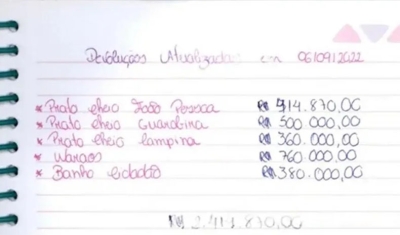 Devoluções Atualizadas em 06/09/2022
* Prato cheio João Pessoa R$ 414.870,00
* Prato cheio Guarabira R$ 500.000,00
* Prato cheio Campina R$ 360.000,00
* Waraos R$ 760.000,00
* Banho Cidadão R$ 380.000,00
R$ 2.414.870,00